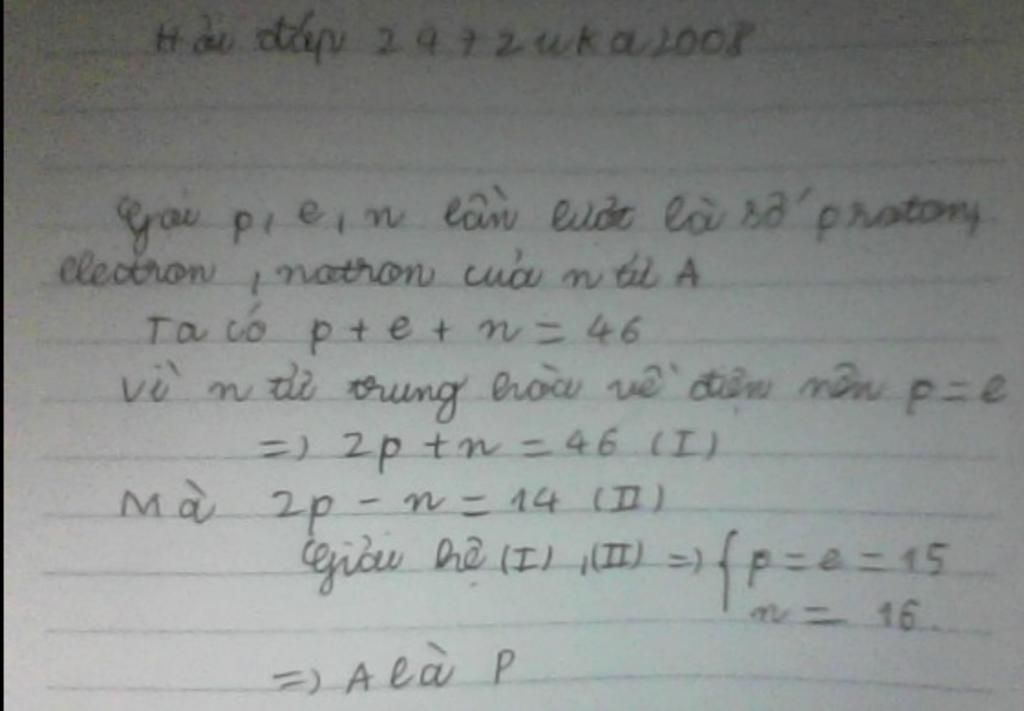 Hỏi đáp 247zuka2008
Gọi p, e, n lần lượt là số proton,
electron, notron của n tử A
Ta có p + e + n = 46
Vì n tử trung hòa về điện nên p = e
=) 2p + n = 46 (I)
Mà 2p - n = 14 (II)
Giải hệ (I), (II) =) { p = e = 15
n = 16.
=) A là P